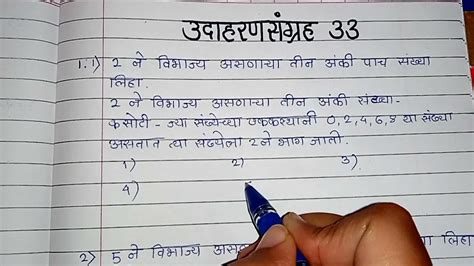 उदाहरणसंग्रह 33
1. 1) 2 ने विभाज्य असणाऱ्या तीन अंकी पाच संख्या
लिहा.
2 ने विभाज्य असणाऱ्या तीन अंकी संख्या -
कसोटी - ज्या संख्येच्या एककस्थानी 0, 2, 4, 6, 8 या संख्या
असतात त्या संख्येला 2 ने भाग जातो.
1) 2) 3)
4)
2) 5 ने विभाज्य लिहा